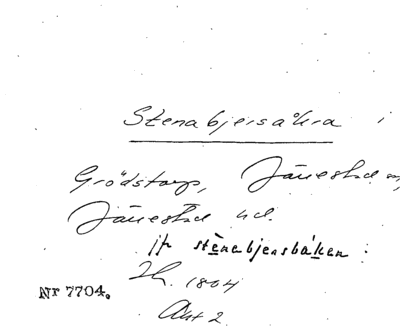 Stenabjersåkra i
Grödstorp, Järrestad sn,
Järrestad hd.
jfr stènebjensbáken :
Sk. 1804
Akt 2
Nr 7704.